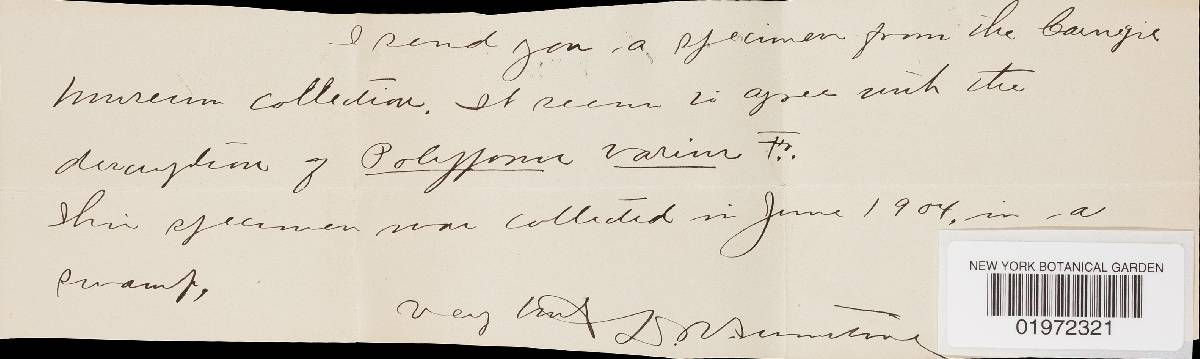 I send you a specimen from the Carnegie
Museum collection. It seems to agree with the
description of Polyporus varius Fr.
This specimen was collected in June 1904, in a
swamp.
Very truly D. R. Sumstine
NEW YORK BOTANICAL GARDEN
01972321